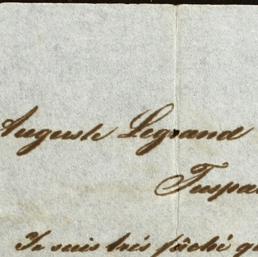 Auguste Legrand
Tuspa
Je suis très fâché q